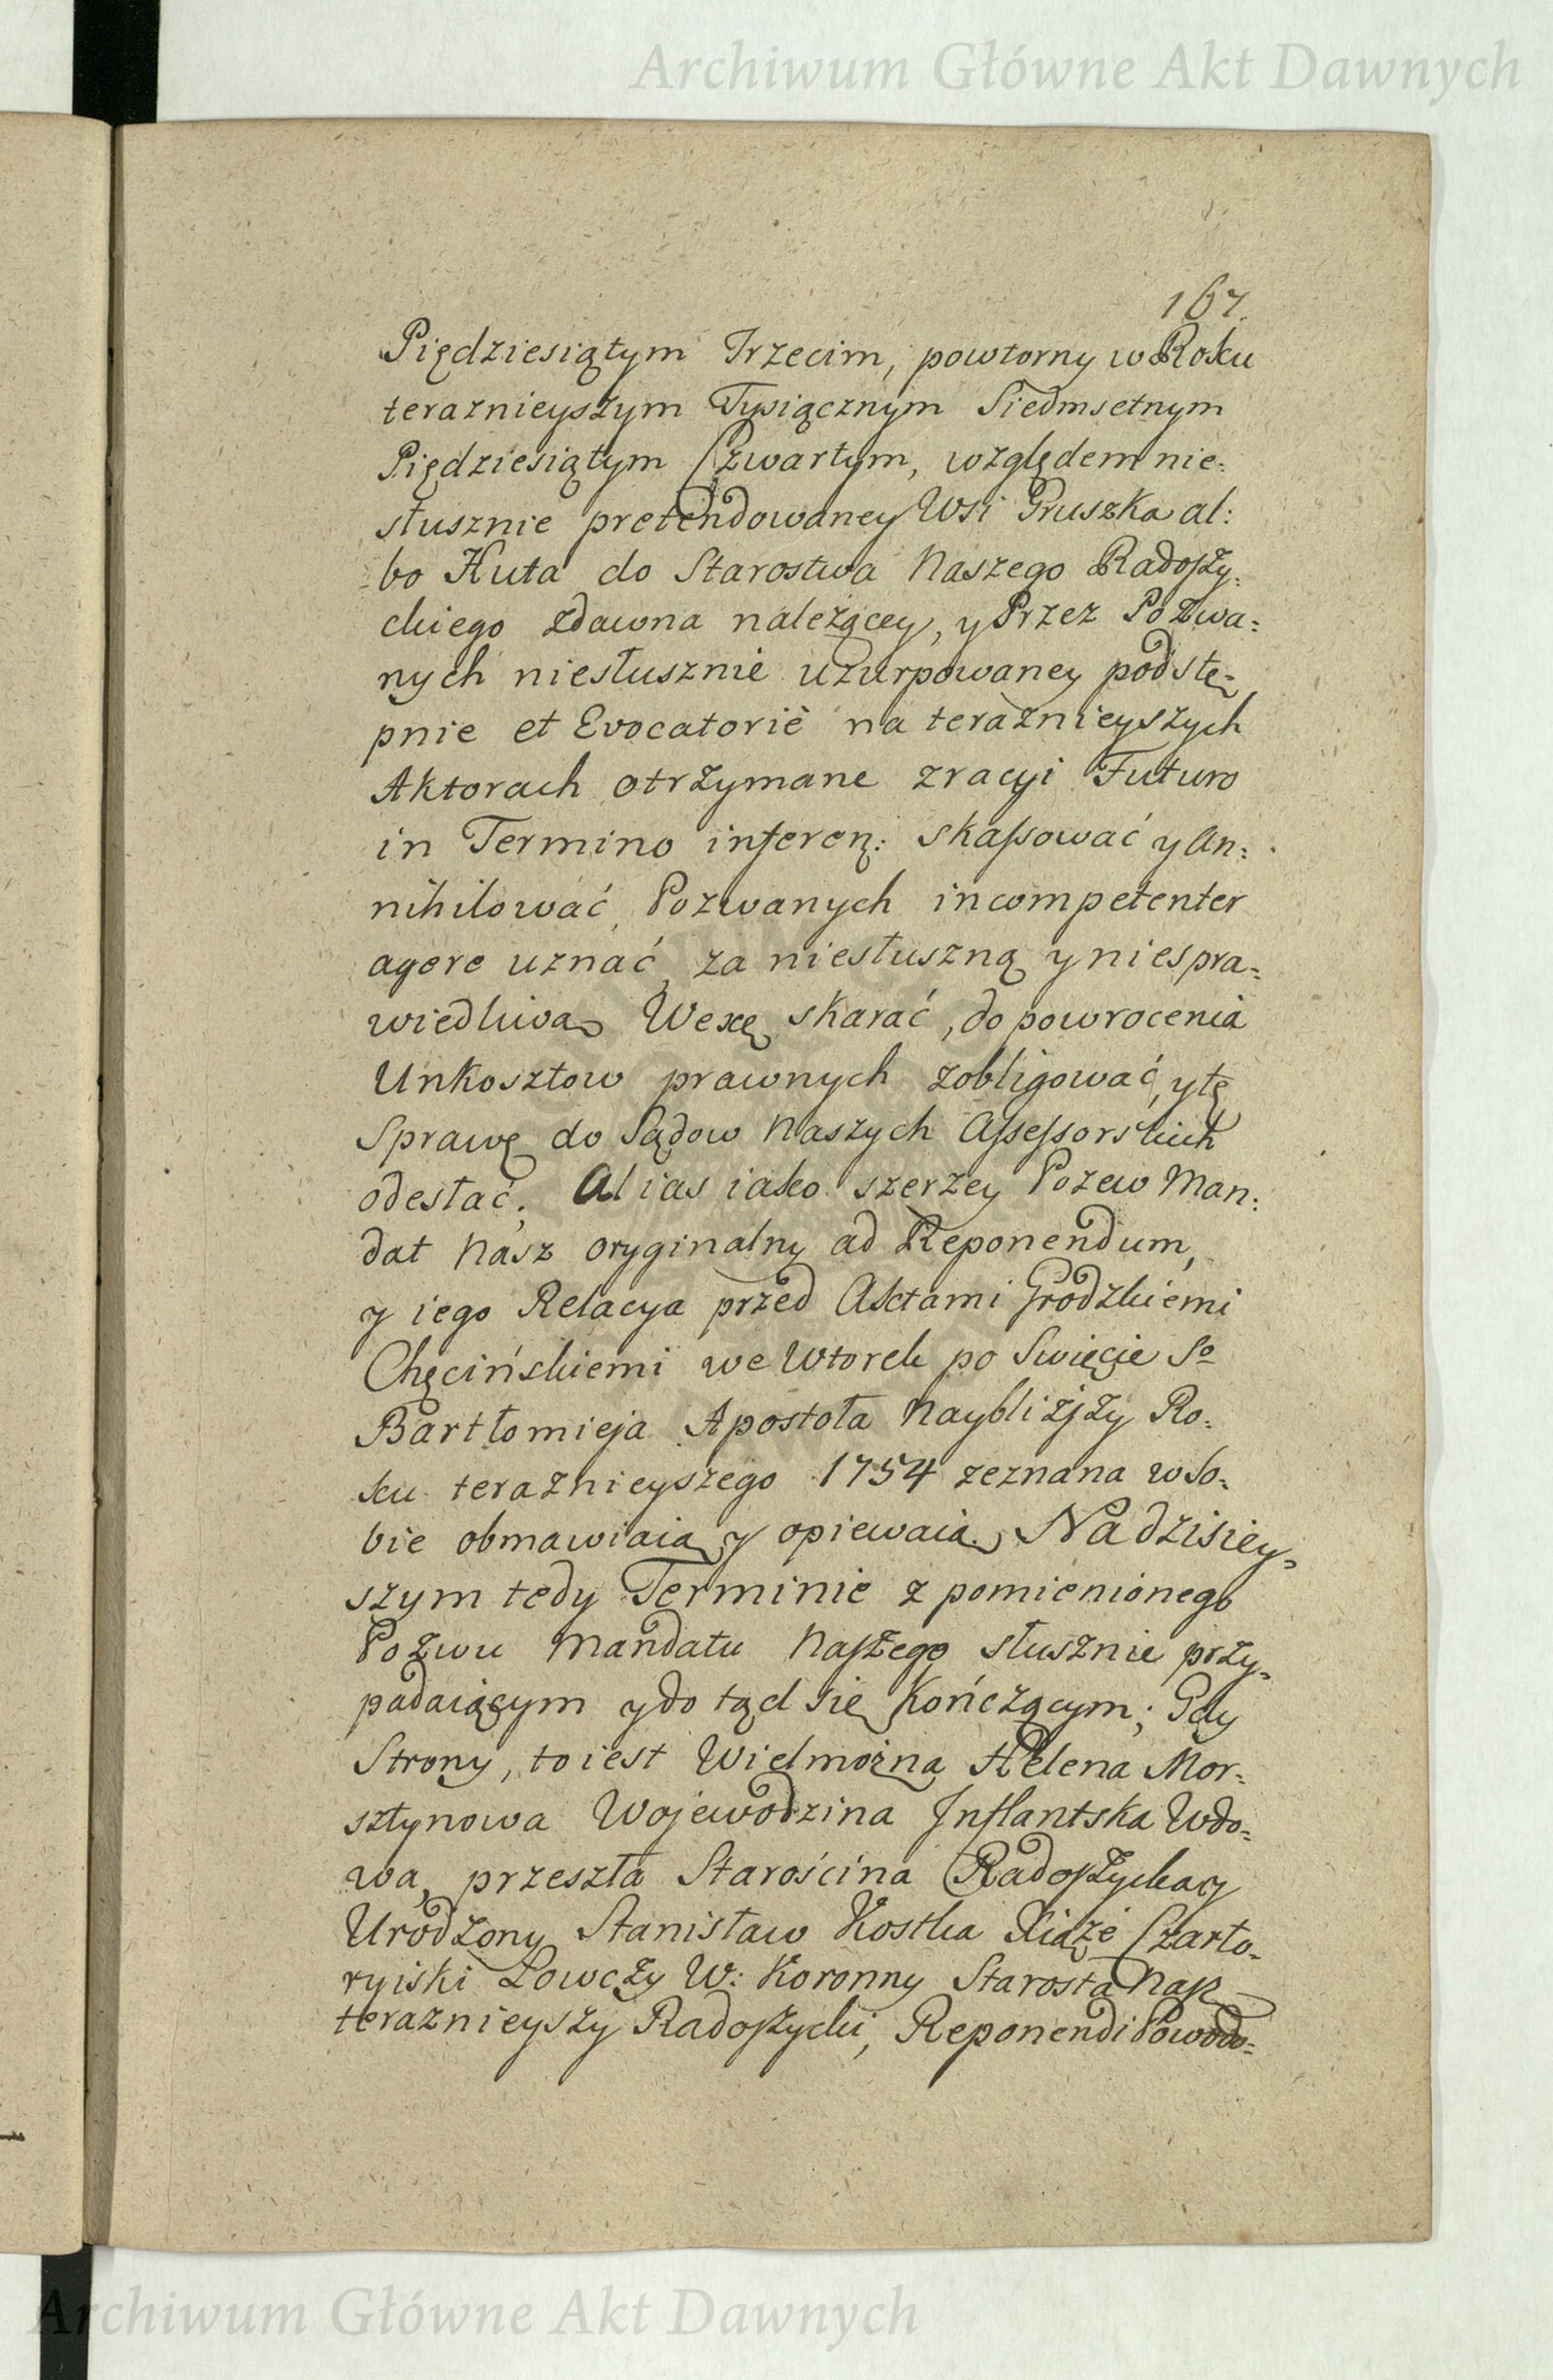 Archiwum Główne Akt Dawnych
167.
Piędziesiątym Trzecim, powtorny w Roku
teraznieyszym Tysiącznym Siedmsetnym
Piędziesiątym Czwartym, względem nie:
słusznie pretendowaney Wsi Gruszka al:
bo Huta do Starostwa Naszego Radoszy:
ckiego zdawna należącey, y Przez Pozwa:
nych niesłusznie uzurpowaney podstę:
pnie et Evocatoriè na teraznieyszych
Aktorach otrzymane zracyi Futuro
in Termino inferen: skassować y An:
nihilować, Pozwanych incompetenter
agere uznać, za niesłuszną y niespra:
wiedliwą Wexę skarać, do powrocenia
Unkosztow prawnych zobligować, y tę
Sprawę do Sądow Naszych Assessorskich
odesłać. Alias iako szerzey Pozew Man:
dat Nasz oryginalny ad Reponendum,
y iego Relacya przed Aktami Grodzkiemi
Chęcińskiemi we Wtorek po Swięcie So
Bartłomieja Apostoła Naybliżjzy Ro:
ku teraznieyszego 1754 zeznana w So:
bie obmawiaią y opiewaią. Na dzisiey:
szym tedy Terminie z pomienionego
Pozwu Mandatu Naszego słusznie przy:
padaiącym y do tąd się Kończącym; Gdy
Strony, to iest Wielmożna Helena Mor:
sztynowa Wojewodzina Inflantska Wdo:
wa, przeszła Starościna Radoszycka y
Urodzony Stanisław Kostka Xiąże Czarto:
ryiski Łowczy W: Koronny Starosta Nasz
teraznieyszy Radoszycki, Reponendi Powodo:
Archiwum Główne Akt Dawnych